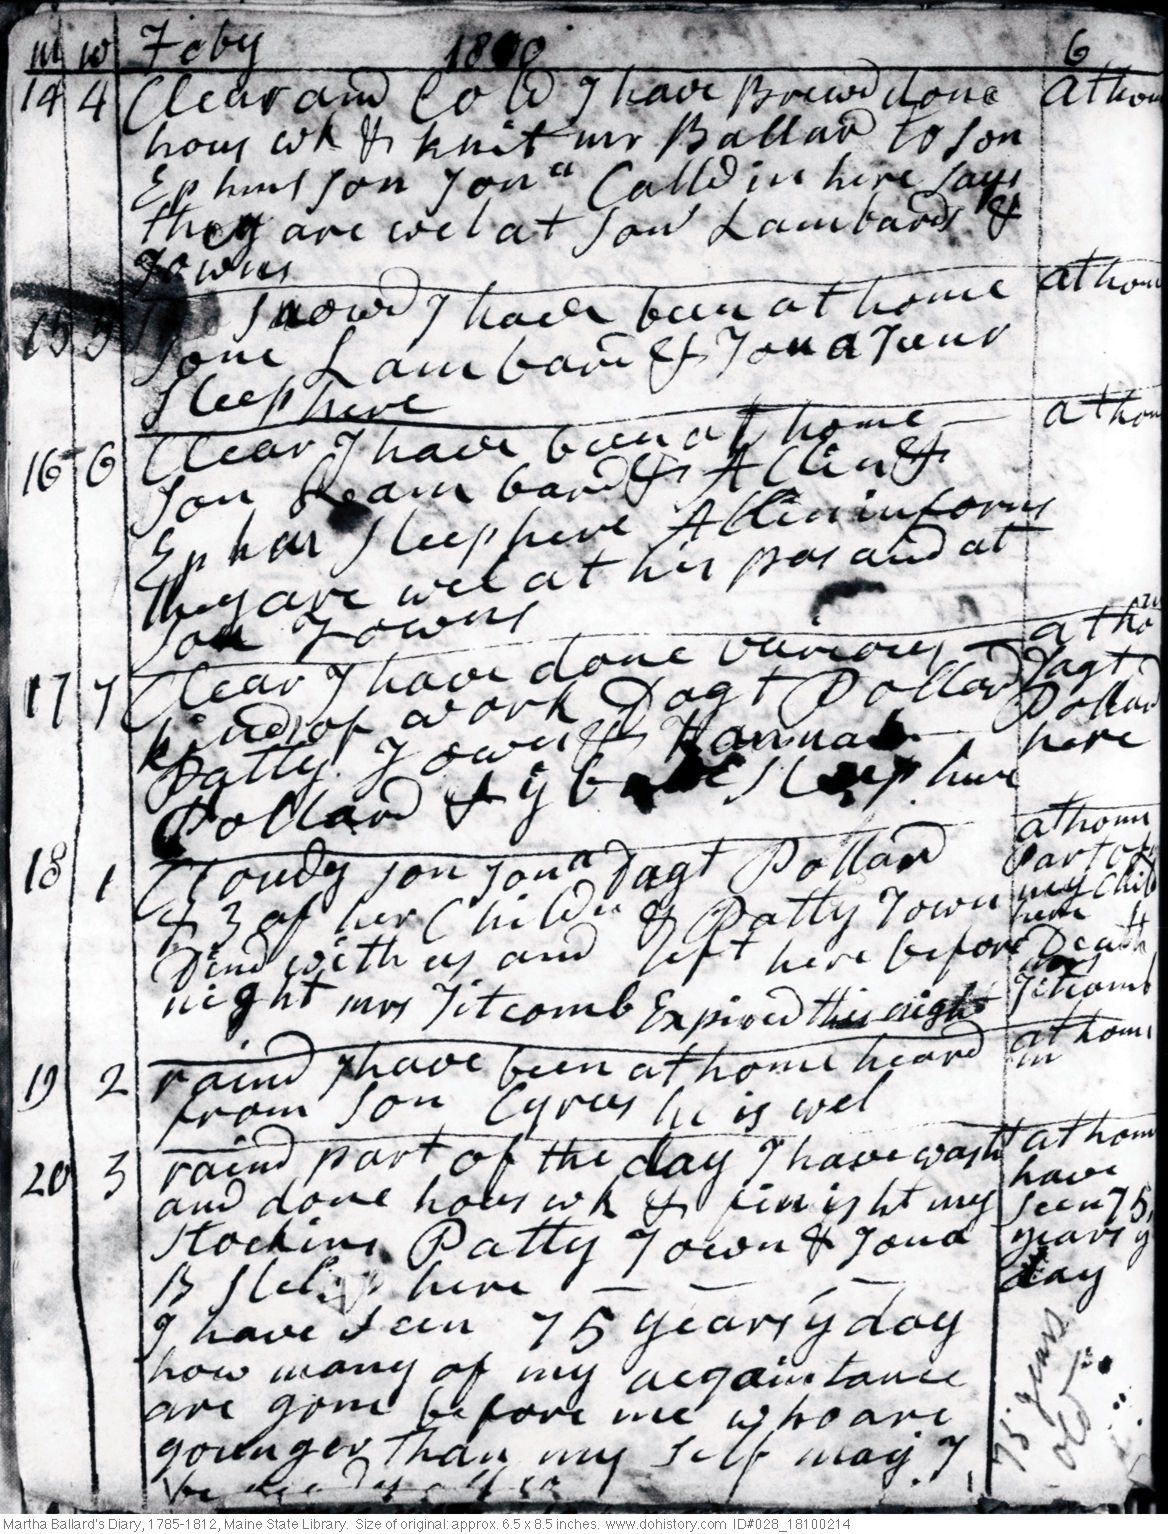 m w Feby 1810 6
14 4 Clear and Cold I have Brewd done at hom
hous wk & knit mr Ballard to son
Ephms son Jona Calld in here says
they are wel at son Lambards &
Towns
15 5 Snowd I have been at home at hom
sone Lambard & Jona Junr
sleep here
16 6 Clear I have been at home at hom
son Lambard & Allin &
Ephm sleep here Allin informs
they are wel at his pas and at
son Towns
17 7 Clear I have done various at ho
kinds of work Dagt Pollard Dagt
Patty Town & Hannah Pollard
Pollard & ye babe sleep here here
18 1 Cloudy son Jona Dagt Pollard at home
& 3 of her Childn & Patty Town part of my Chil
Dind with us and left here before here Death
night mrs Titcomb Expired this night mrs Titcomb
19 2 raind I have been at home heard at home
from son Cyrus he is wel
20 3 raind part of the day I have washt at hom
and done hous wk & finisht my have
stockins Patty Town & Jona seen 75
B sleep here years y
I have seen 75 years y day day
how many of my acqaintance
are gone before me who are 75 years
younger than my self may I old
be
Martha Ballard's Diary, 1785-1812, Maine State Library. Size of original: approx. 6.5 x 8.5 inches. www.dohistory.com ID#028_18100214